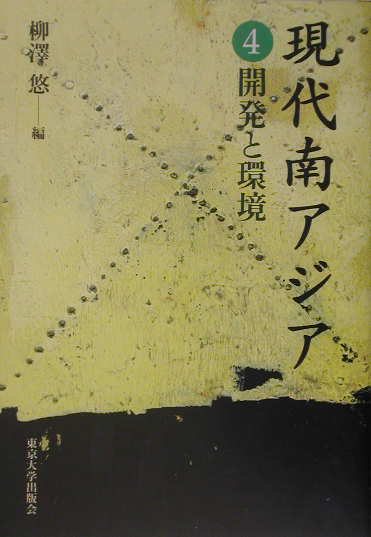 現代南アジア
4
開発と環境
柳澤 悠──編
東京大学出版会